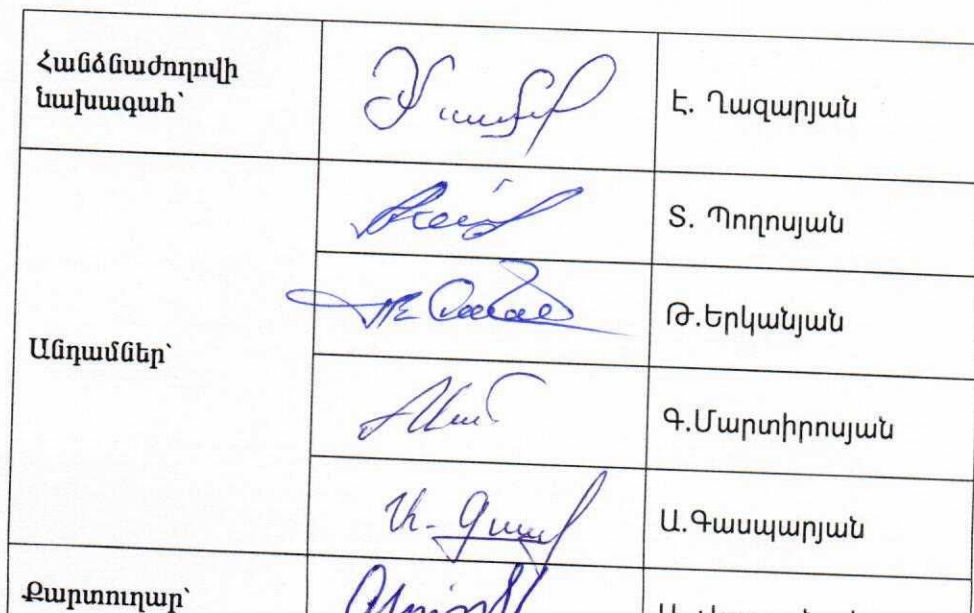 Հանձնաժողովի
նախագահ՝
Է. Ղազարյան
Տ. Պողոսյան
Թ.Երկանյան
Անդամներ՝
Գ.Մարտիրոսյան
Ա.Գասպարյան
Քարտուղար՝